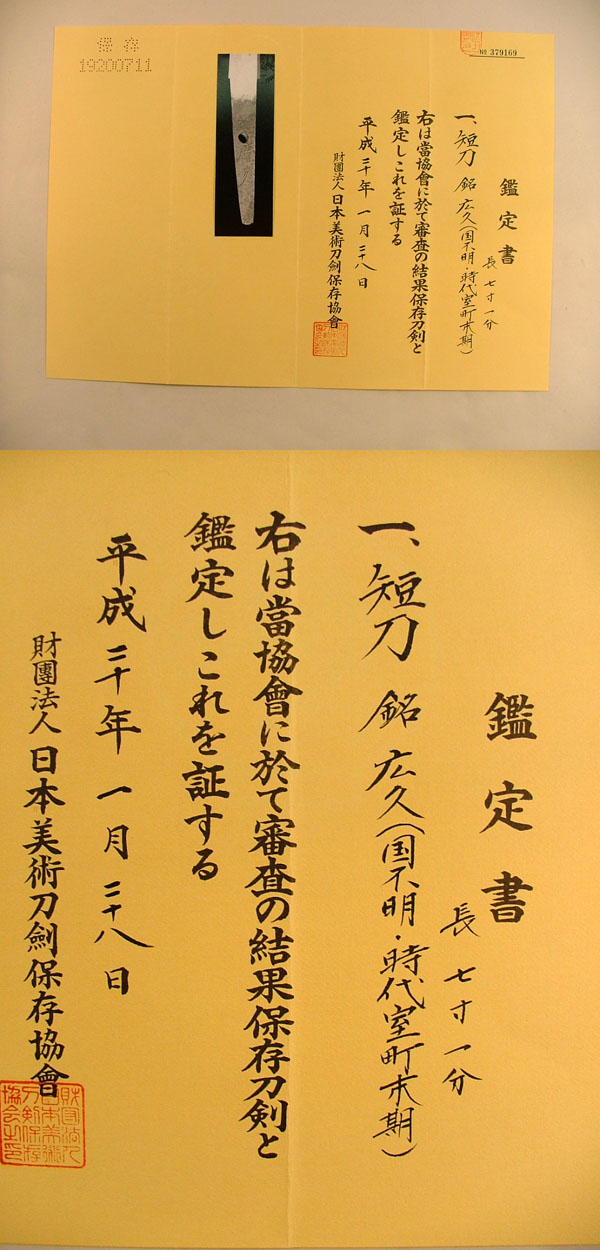 保存
19200711
№ 379169
鑑定書
一、短刀 銘 広久(国不明・時代室町末期)
長 七寸一分
右は當協會に於て審査の結果保存刀剣と
鑑定しこれを証する
平成二十年一月二十八日
財團法人日本美術刀劍保存協會
鑑定書
一、短刀 銘 広久(国不明・時代室町末期)
長 七寸一分
右は當協會に於て審査の結果保存刀剣と
鑑定しこれを証する
平成二十年一月二十八日
財團法人日本美術刀劍保存協會
財団法人
日本美術
刀剣保存
協会之印